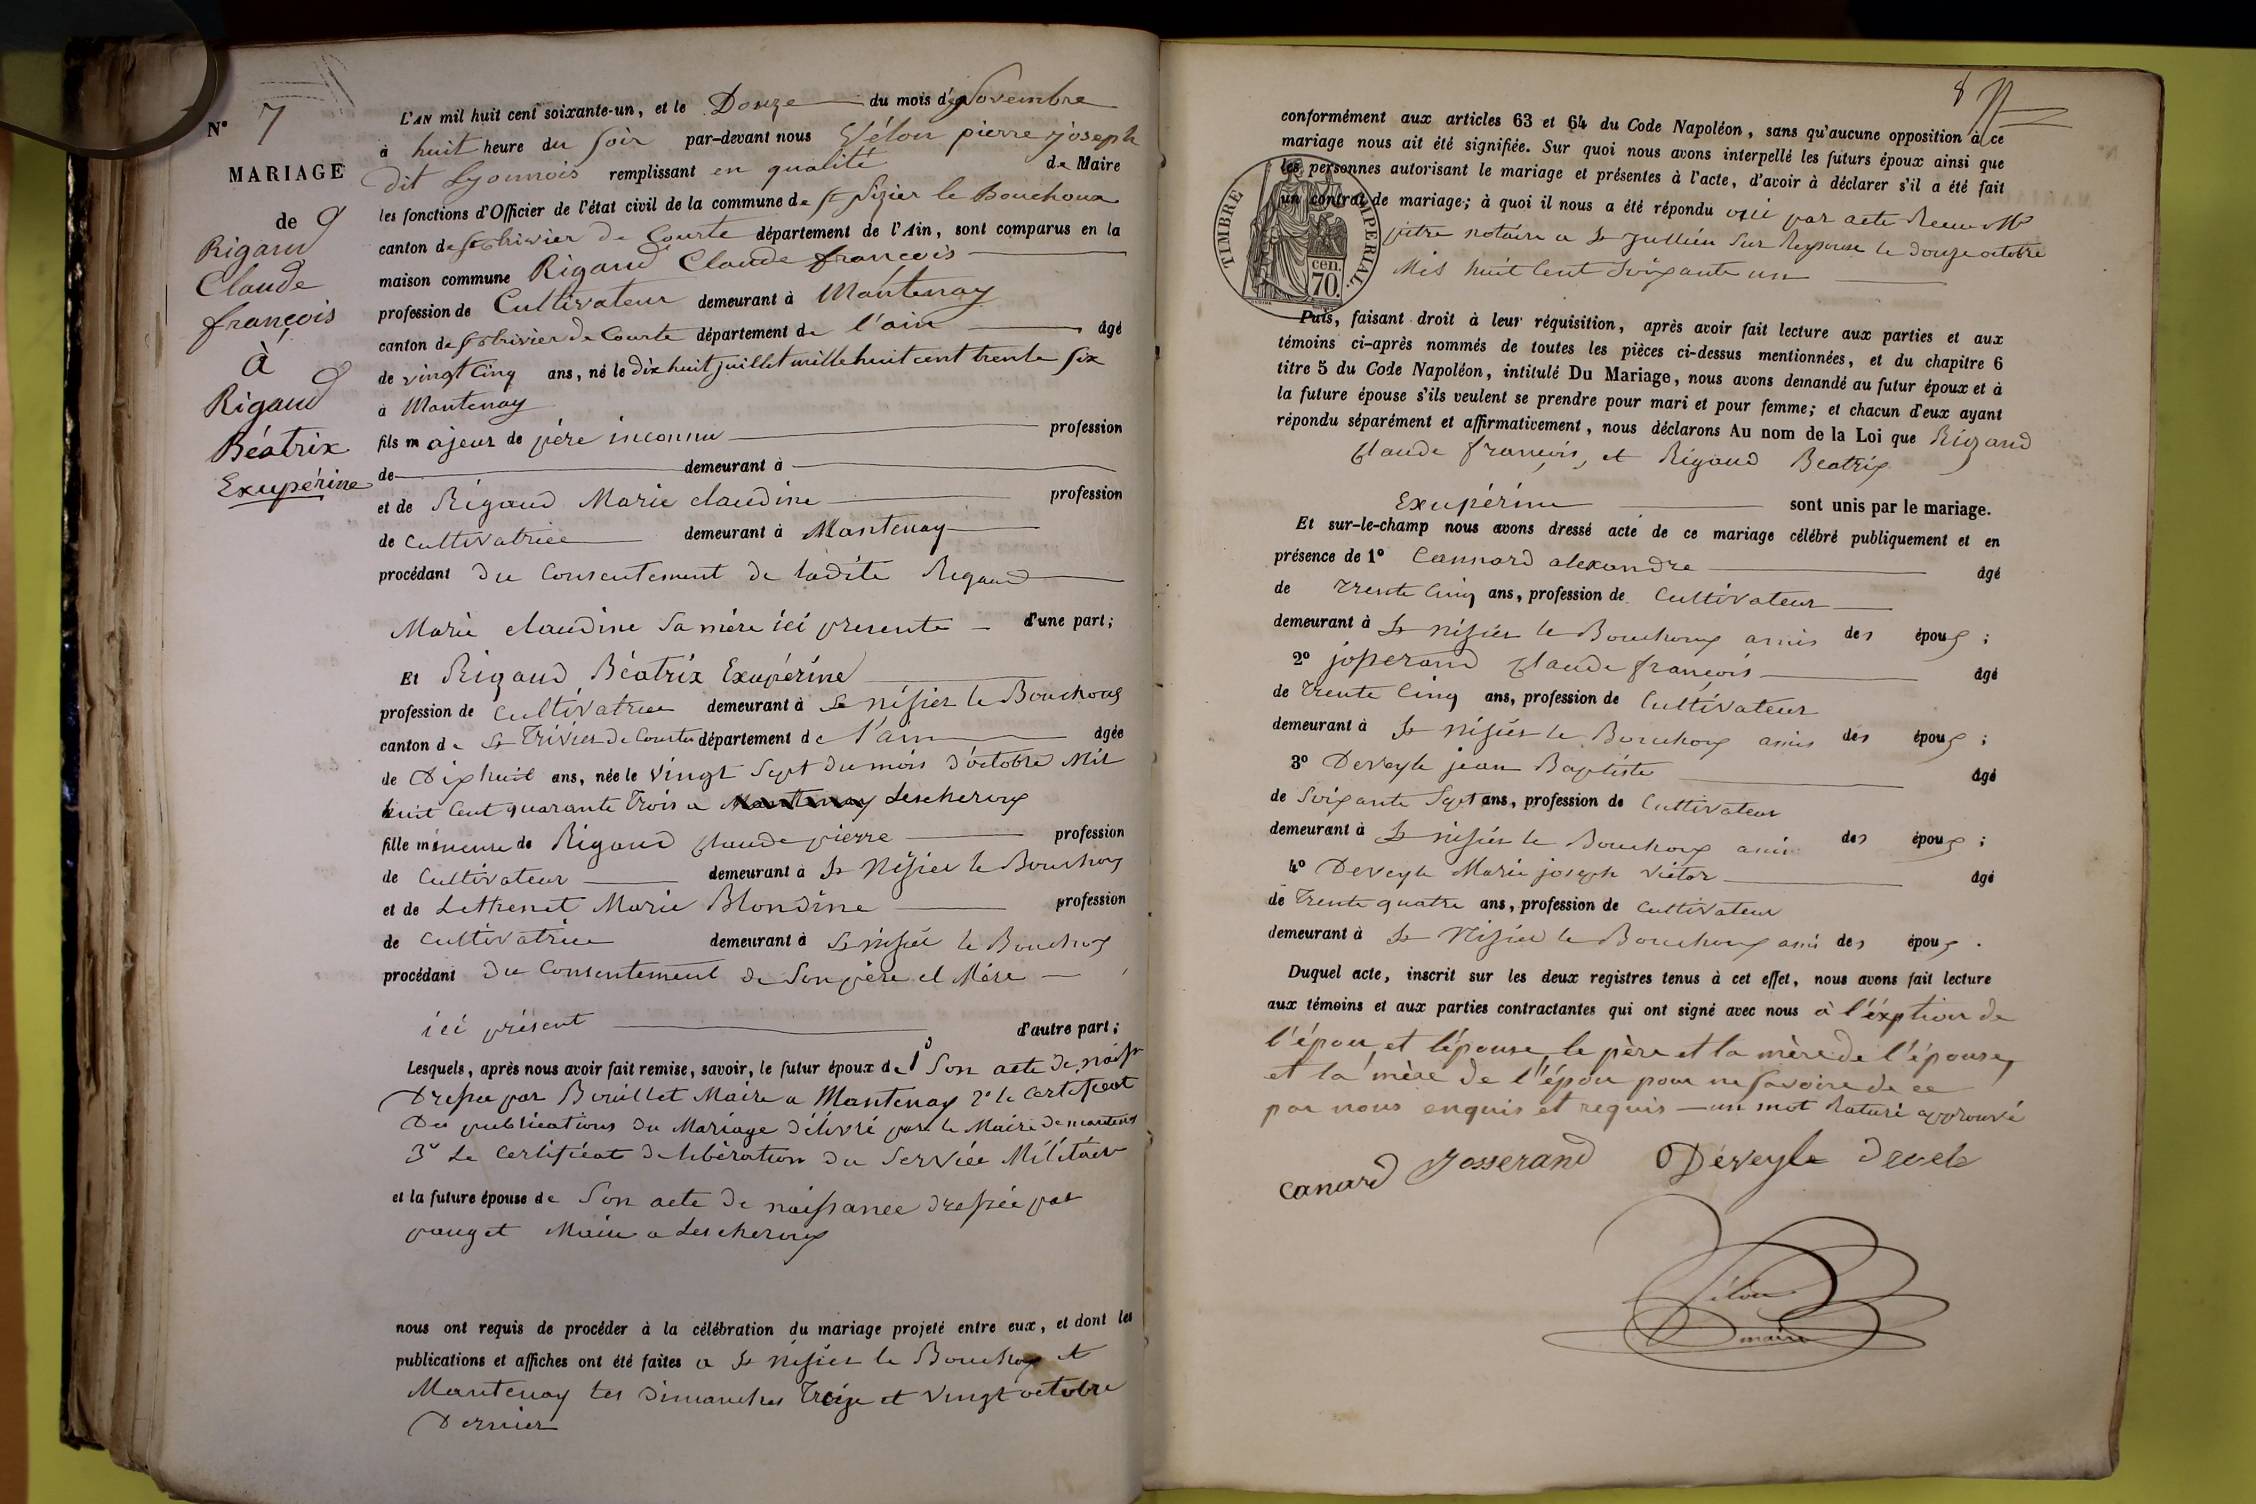 N° 7
MARIAGE
de
Rigaud
Claude
françois
à
Rigaud
Béatrix
Exupérine
L'AN mil huit cent soixante-un, et le Douze du mois de Novembre
à huit heure du soir par-devant nous Félon pierre joseph
dit Lyonnois remplissant en qualité de Maire
les fonctions d'Officier de l'état civil de la commune de st Nizier le Bouchoux
canton de st trivier de Courte département de l'Ain, sont comparus en la
maison commune Rigaud Claude françois
profession de Cultivateur demeurant à Mantenay
canton de st trivier de Courte département de l'ain âgé
de vingt Cinq ans, né le dix huit juillet mille huit cent trente six
à Mantenay
fils majeur de père inconnu profession
de demeurant à
et de Rigaud Marie claudine profession
de Cultivatrice demeurant à Mantenay
procédant du Consentement de ladite Rigaud
Marie claudine Sa mère ici presente d'une part;
Et Rigaud Béatrix Exupérine
profession de Cultivatrice demeurant à St Nisier le Bouchoux
canton de St Trivier de Courtes département de l'ain âgée
de Dix huit ans, née le vingt Sept du mois d'octobre Mil
huit Cent quarante Trois a Mantenay Lescheroux
fille mineure de Rigaud Claude pierre profession
de Cultivateur demeurant à St Nisier le Bouchoux
et de Lethenet Marie Blondine profession
de Cultivatrice demeurant à St Nisier le Bouchoux
procédant du Consentement de Son père et Mère
ici présent d'autre part;
Lesquels, après nous avoir fait remise, savoir, le futur époux de 1° Son acte de naiss
Dressée par Bouillet Maire a Mantenay 2° le Certificat
Des publications du Mariage délivré par le Maire de mantenay
3° Le Certificat de libération du Service Militaire
et la future épouse de Son acte de naissance dressée par
pauget Maire a Lescheroux
nous ont requis de procéder à la célébration du mariage projeté entre eux, et dont les
publications et affiches ont été faites a St Nisier le Bouchoux et
Mantenay les Dimanches Treize et Vingt octobre
Dernier
8
conformément aux articles 63 et 64 du Code Napoléon, sans qu'aucune opposition à ce
mariage nous ait été signifiée. Sur quoi nous avons interpellé les futurs époux ainsi que
les personnes autorisant le mariage et présentes à l'acte, d'avoir à déclarer s'il a été fait
un contrat de mariage; à quoi il nous a été répondu oui par acte Recu Me
pitre notaire a St Jullien Sur Reyssouze le douze octobre
Mil huit Cent Soixante un
TIMBRE IMPERIAL.
cen.
70.
Puis, faisant droit à leur réquisition, après avoir fait lecture aux parties et aux
témoins ci-après nommés de toutes les pièces ci-dessus mentionnées, et du chapitre 6
titre 5 du Code Napoléon, intitulé Du Mariage, nous avons demandé au futur époux et à
la future épouse s'ils veulent se prendre pour mari et pour femme; et chacun d'eux ayant
répondu séparément et affirmativement, nous déclarons Au nom de la Loi que Rigaud
Claude françois, et Rigaud Beatrix
Exupérine sont unis par le mariage.
Et sur-le-champ nous avons dressé acte de ce mariage célébré publiquement et en
présence de 1° Cannard alexandre âgé
de Trente Cinq ans, profession de Cultivateur
demeurant à St Nisier le Bouchoux amis des époux;
2° josserand Claude françois âgé
de Trente Cinq ans, profession de Cultivateur
demeurant à St Nisier le Bouchoux amis des époux;
3° Deveyle jean Baptiste âgé
de Soixante Sept ans, profession de Cultivateur
demeurant à St Nisier le Bouchoux ami des époux;
4° Deveyle Marie joseph Victor âgé
de Trente quatre ans, profession de Cultivateur
demeurant à St Nisier le Bouchoux ami des époux.
Duquel acte, inscrit sur les deux registres tenus à cet effet, nous avons fait lecture
aux témoins et aux parties contractantes qui ont signé avec nous à l'éxption de
l'épou et l'épouse, le père et la mère de l'épouse,
et la mère de l'épou pour ne savoire de ce
par nous enquis et requis — un mot Raturé approuvé
canard Josserand Déveyle
Félon
maire